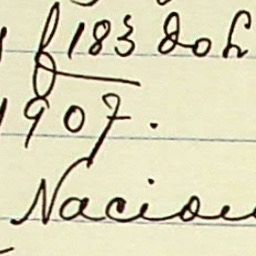 f 183 do L
1907.
Nacion